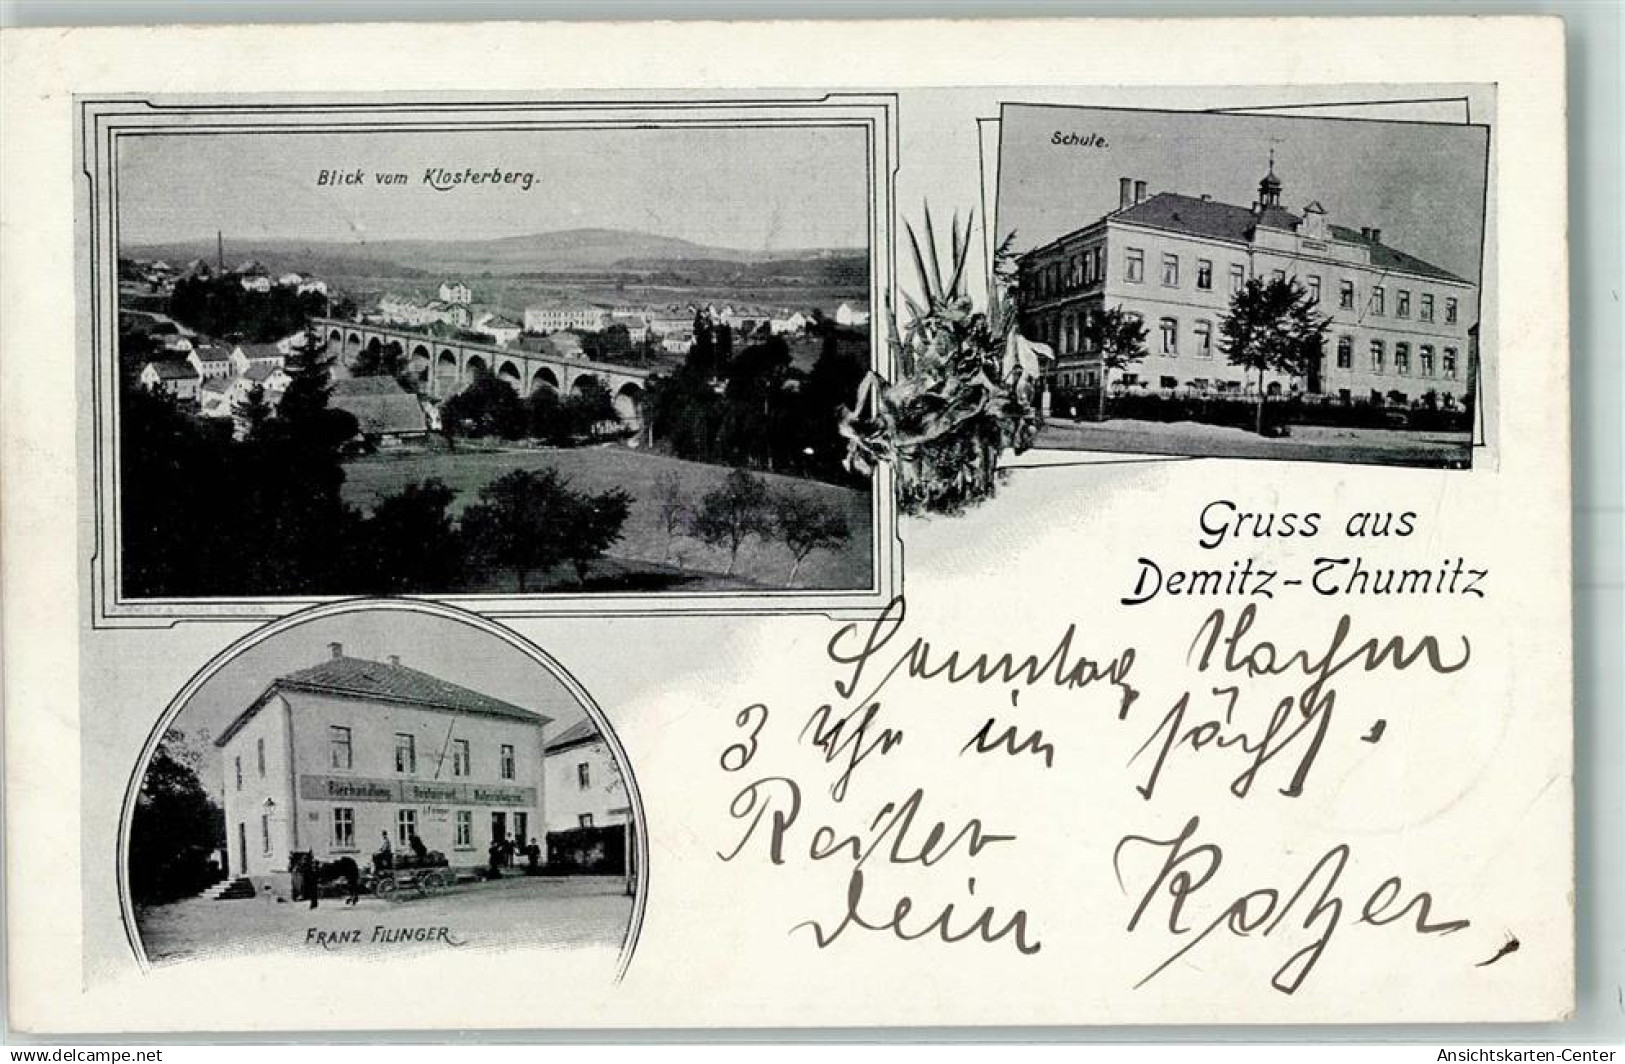 Blick vom Klosterberg.
Schule.
Gruss aus
Demitz-Thumitz
Bierhandlung Restaurant Materialwaren
FRANZ FILINGER
Sonntag Nachm
3 Uhr im sächs.
Reiter
Dein Kotzer,
www.delcampe.net
Ansichtskarten-Center